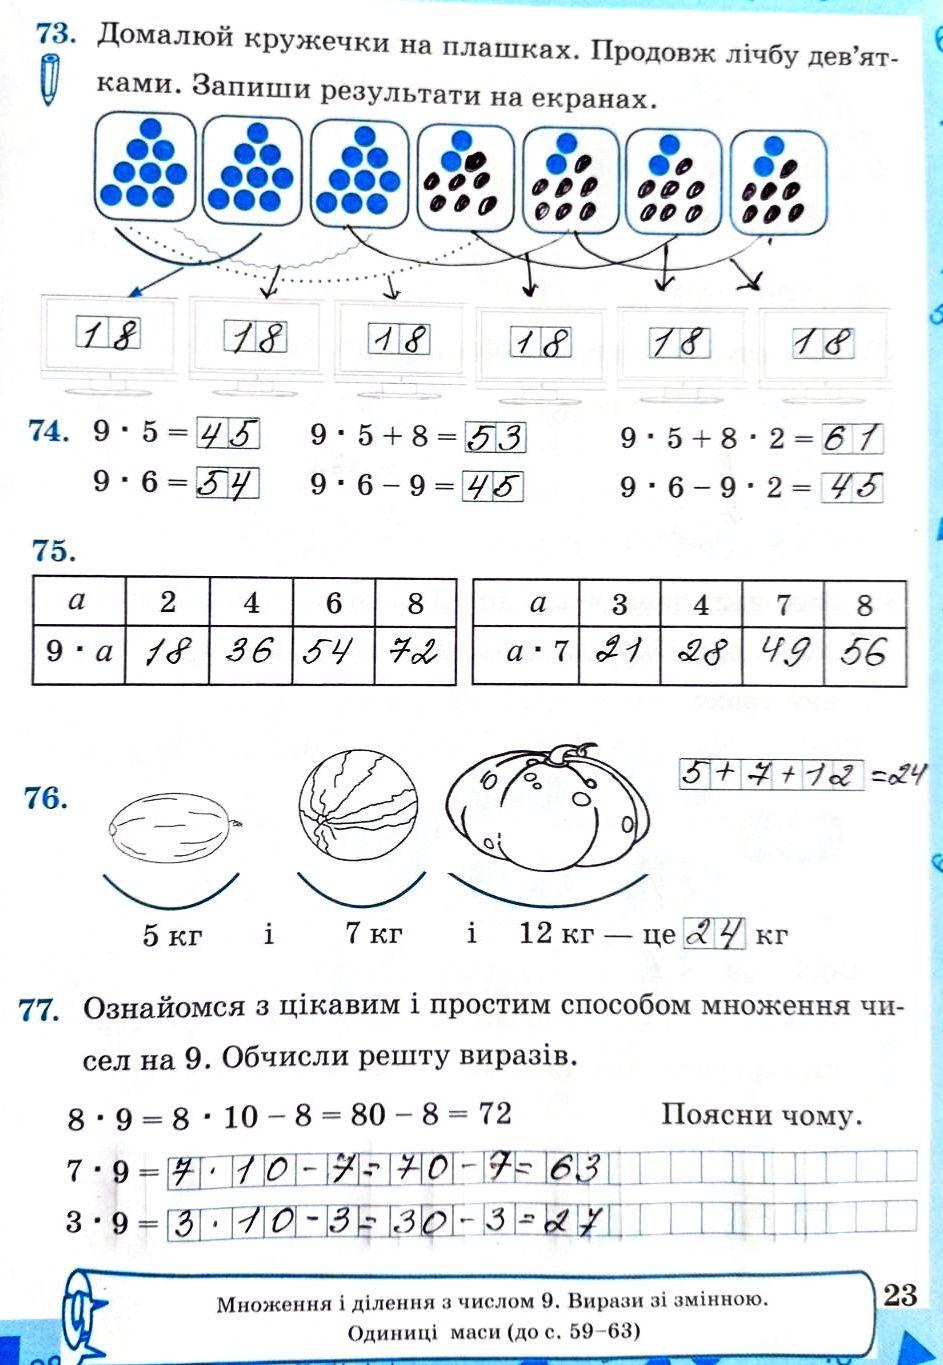 73. Домалюй кружечки на плашках. Продовж лічбу дев’ят-
ками. Запиши результати на екранах.
18 18 18 18 18 18
74. 9 · 5 = 45 9 · 5 + 8 = 53 9 · 5 + 8 · 2 = 61
9 · 6 = 54 9 · 6 – 9 = 45 9 · 6 – 9 · 2 = 45
75.
a 2 4 6 8 a 3 4 7 8
9 · a 18 36 54 72 a · 7 21 28 49 56
5+7+12 =24
76.
5 кг і 7 кг і 12 кг — це 24 кг
77. Ознайомся з цікавим і простим способом множення чи-
сел на 9. Обчисли решту виразів.
8 · 9 = 8 · 10 – 8 = 80 – 8 = 72 Поясни чому.
7 · 9 = 7 · 10 - 7 = 70 - 7 = 63
3 · 9 = 3 · 10 - 3 = 30 - 3 = 27
Множення і ділення з числом 9. Вирази зі змінною.
Одиниці маси (до с. 59–63)
23